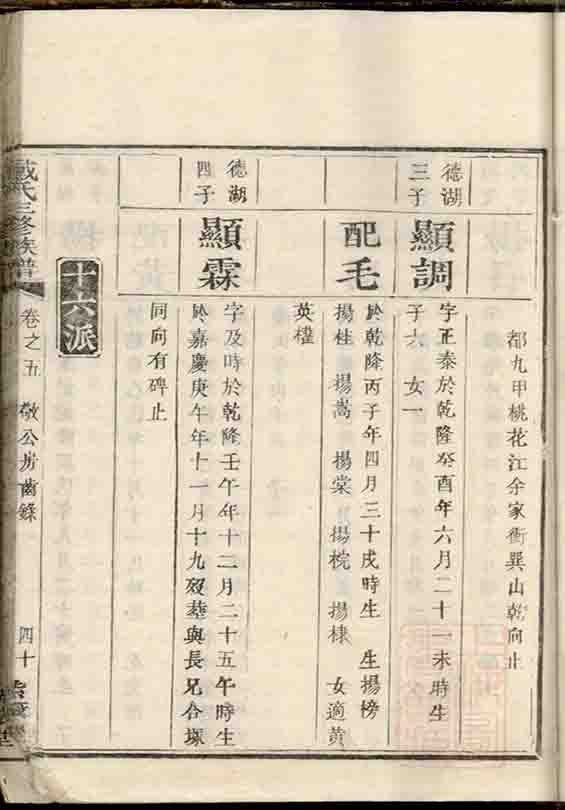 都九甲桃花江余家衝巽山乾向止
德湖
三子
顯調
字正泰於乾隆癸酉年六月二十一未時生
子六 女一
配毛
於乾隆丙子年四月三十戌時生 生揚榜
揚桂 揚嵩 揚棠 揚梡 揚棣 女適黄
英權
德湖
四子
顯霖
字及時於乾隆壬午年十二月二十五午時生
於嘉慶庚午年十一月十九歿塟與長兄合塚
同向有碑止
十六派
戴氏三修族譜
卷之五 敬公房齒錄 四十